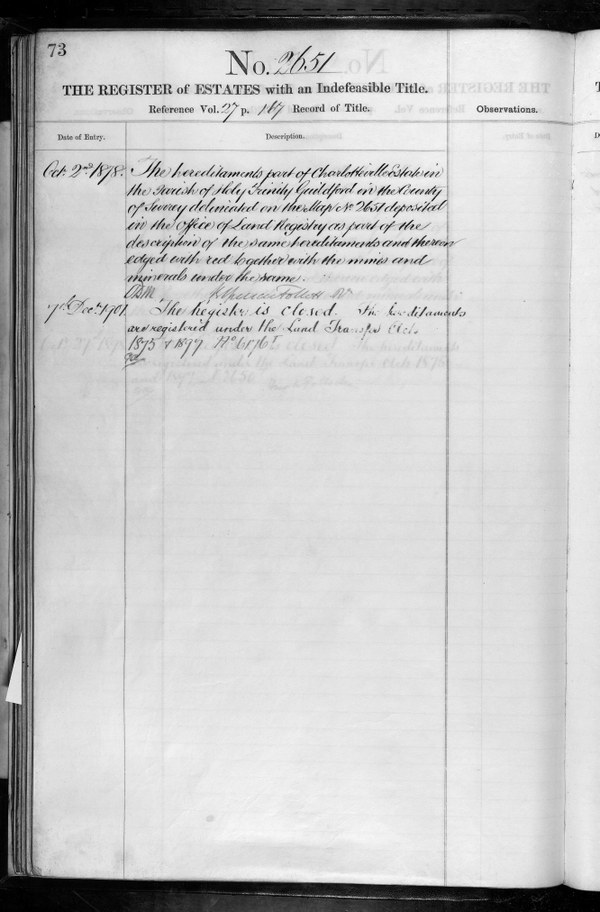 73
No. 2651
THE REGISTER of ESTATES with an Indefeasible Title.
Reference Vol. 27 p. 167 Record of Title.
Observations.
Date of Entry.
Description.
Oct. 2nd 1878. The hereditaments part of Charlotteville Estate in
the Parish of Holy Trinity Guildford in the County
of Surrey delineated on the Map No 2651 deposited
in the Office of Land Registry as part of the
description of the same hereditaments and thereon
edged with red together with the mines and
minerals under the same
Follett
7th Decr. 1901. The Register is closed. The hereditaments
are registered under the Land Transfer Acts
1875 & 1897.